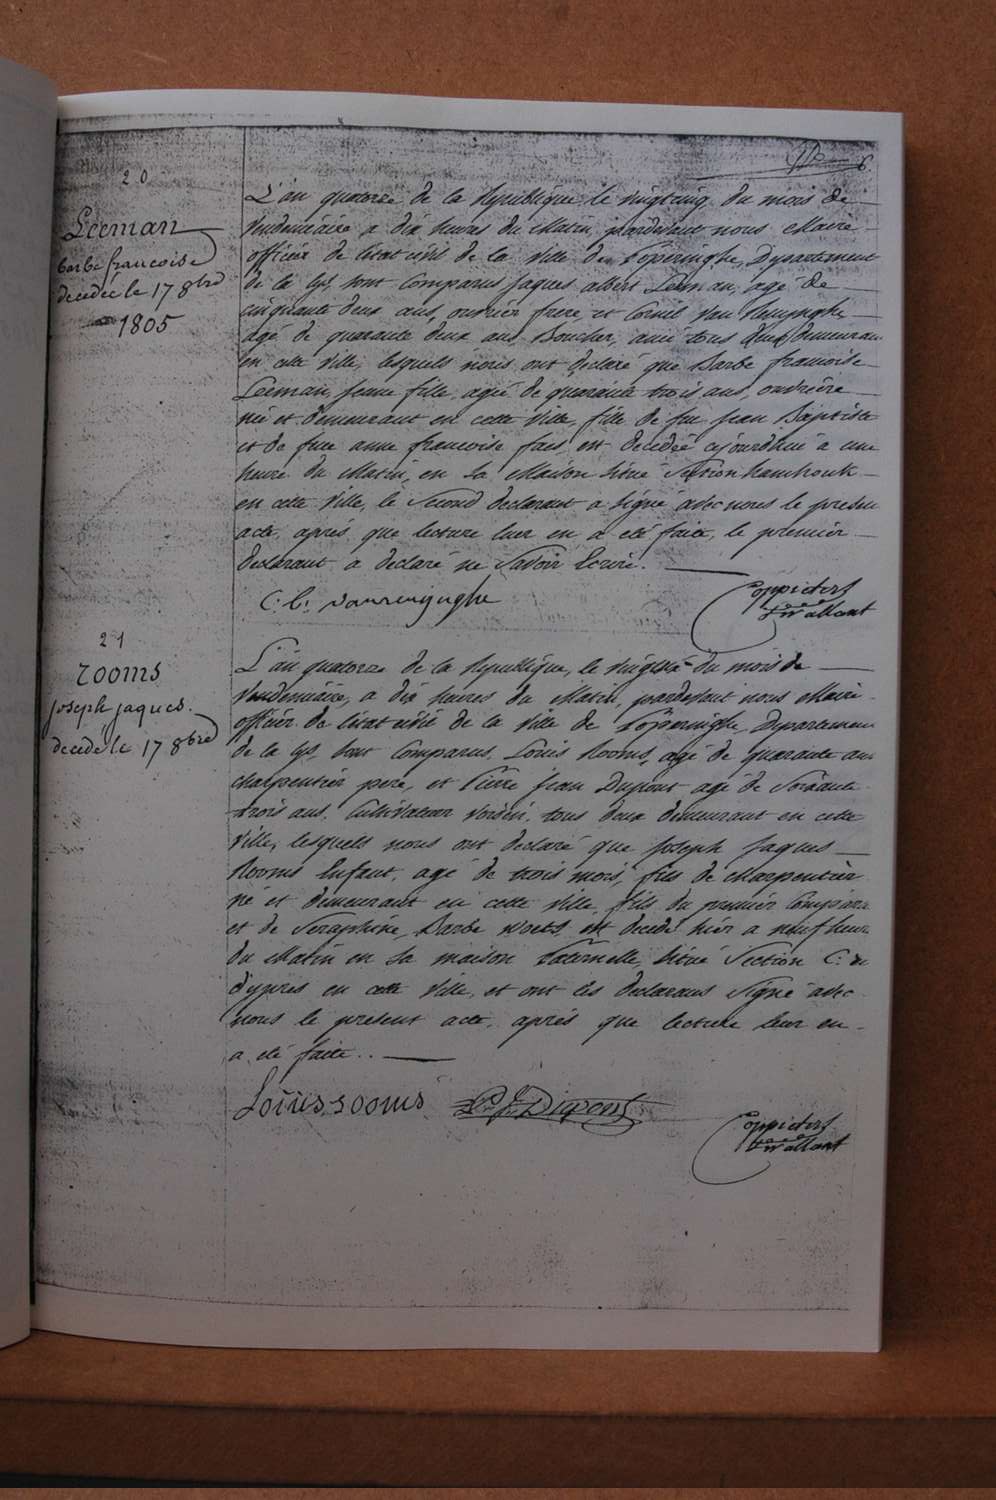 6.
20
Leeman
barbe francoise
decedée le 17 8bre
1805
L'an quatorze de la Republique le vingtcinq du mois de
Vendemiaire a dix heures du Matin, pardevant nous Maire
officier de l'état civil de la Ville de Poperinghe, Departement
de la Lys, sont Comparus Jaques albert Leeman, agé de
cinquante deux ans, ouvrier frere et Corneil Van Renynghe
agé de quarante deux ans Boucher, ami tous deux demeurant
en cette Ville, lesquels nous ont declaré que Barbe francoise
Leeman, Jeune fille, agée de quarante trois ans, ouvriére
née et demeurant en cette Ville, fille de feu Jean Baptiste
et de feue anne francoise faes est decedée ajourdhui a une
heure du Matin, en sa Maison situé Section hamhouck
en cette Ville, le Second declarant a signé avec nous le present
acte, aprés que lecture leur en a été faite, le premier
declarant a declaré ne savoir Ecrire.
C. L. vanrenynghe
Coppieters
t'wallant
21
rooms
joseph jaques.
decede le 17 8bre
L'an quatorze de la Republique, le vingtsix du mois de
Vendemiaire, a dix heures du Matin, pardevant nous Maire
officier de l'état civil de la Ville de Poperinghe, Departement
de la Lys, sont Comparus, Louis Rooms, agé de quarante ans
charpentier pere, et Pierre Jean Dupont agé de Soixante
trois ans, Cultivateur Voisin, tous deux demeurant en cette
Ville, lesquels nous ont declaré que Joseph Jaques
Rooms Enfant, agé de trois mois, fils de Charpentier
né et demeurant en cette Ville, fils du premier Comparant
et de Seraphine Barbe Woets, est decedé hier a neuf heures
du Matin en sa maison Paternelle, situé Section C. de
d'ypres en cette Ville, et ont les declarans Signé avec
nous le present acte, aprés que lecture leur en
a été faite..
Louis rooms P. J. Dupont
Coppieters
t'wallant